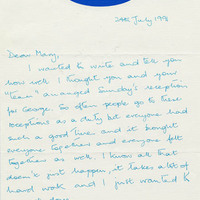 24th July 1998
Dear Mary,
I wanted to write and tell you
how well I thought you and your
"team" arranged Sunday's reception
for George. So often people go to these
receptions as a duty but everyone had
such a good time and it brought
everyone together and everyone felt
together as well. I know all that
doesn't just happen, it takes a lot of
hard work and I just wanted to